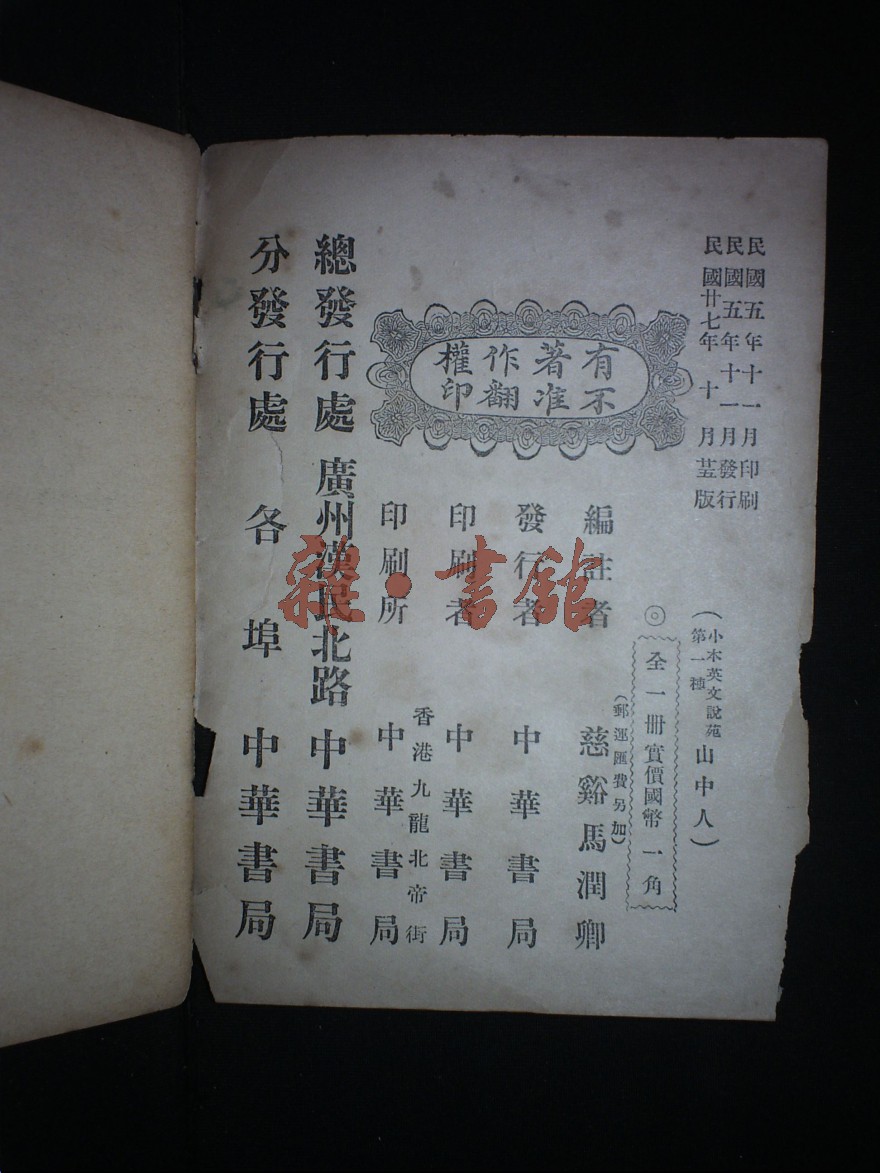 民國五年十一月印刷
民國五年十一月發行
民國廿七年十月莹版
（小本英文說苑第一種 山中人）
◎全一冊實價國幣一角
（郵運匯費另加）
有著作權
不准翻印
編註者 慈谿馬潤卿
發行者 中華書局
印刷者 中華書局
香港九龍北帝街
印刷所 中華書局
總發行處 廣州漢民北路 中華書局
分發行處 各埠 中華書局
雜·書館